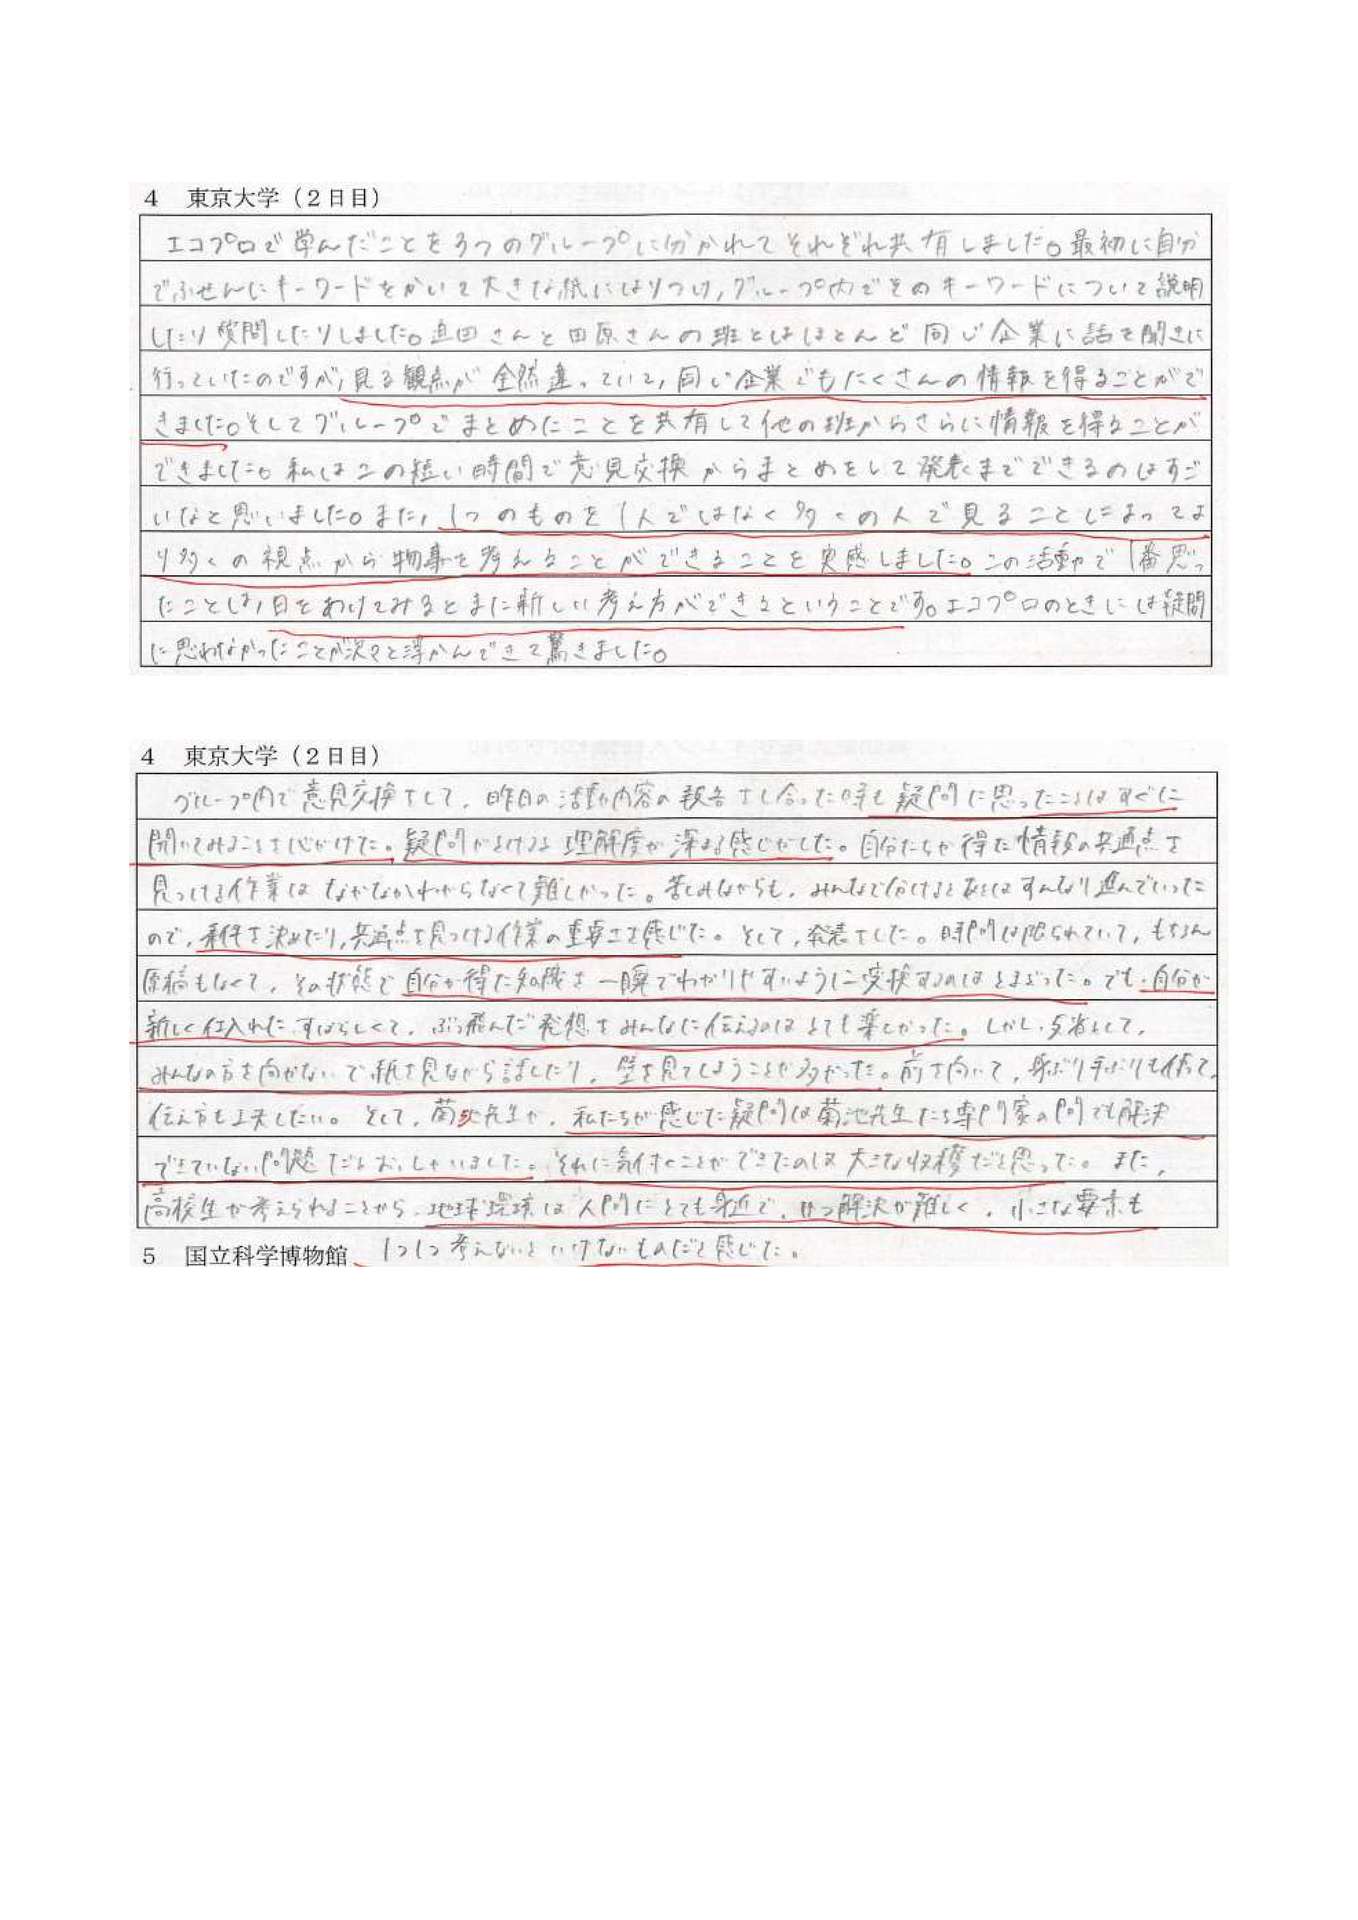 4 東京大学（２日目）
エコプロで学んだことを3つのグループに分かれてそれぞれ共有しました。最初に自分
でふせんにキーワードをかいて大きな紙にはりつけ,グループ内でそのキーワードについて説明
したり質問したりしました。迫田さんと田原さんの班とはほとんど同じ企業に話を聞きに
行っていたのですが,見る観点が全然違っていて,同じ企業でもたくさんの情報を得ることがで
きました。そしてグループでまとめたことを共有して他の班からさらに情報を得ることが
できました。私はこの短い時間で意見交換からまとめをして発表までできるのはすご
いなと思いました。また,1つのものを1人ではなく多くの人で見ることによってよ
り多くの視点から物事を考えることができることを実感しました。この活動で1番思っ
たことは,日をあけてみるとまた新しい考え方ができるということです。エコプロのときには疑問
に思わなかったことが次々と浮かんできて驚きました。
4 東京大学（２日目）
グループ内で意見交換をして、昨日の活動内容の報告をし合った時も疑問に思ったことはすぐに
聞いてみることを心がけた。疑問がとけると理解度が深まる感じがした。自分たちが得た情報の共通点を
見つける作業はなかなかわからなくて難しかった。苦しみながらも、みんなで分けるとあとはすんなり進んでいった
ので、条件を決めたり,共通点を見つける作業の重要さを感じた。そして、発表をした。時間は限られていて、もちろん
原稿もなくて、その状態で自分が得た知識を一瞬でわかりやすいように変換するのはとまどった。でも、自分が
新しく仕入れた、すばらしくて、ぶっ飛んだ発想をみんなに伝えるのはとても楽しかった。しかし、反省として、
みんなの方を向かないで紙を見ながら話したり、壁を見てしまうことが多かった。前を向いて、身ぶり手ぶりも使って、
伝え方も工夫したい。そして、菊池先生が、私たちが感じた疑問は菊池先生たち専門家の間でも解決
できていない問題だとおっしゃいました。それに気付くことができたのは大きな収穫だと思った。また、
高校生が考えられることから、地球環境は人間にとても身近で、かつ解決が難しく、小さな要素も
1つ1つ考えないといけないものだと感じた。
5 国立科学博物館